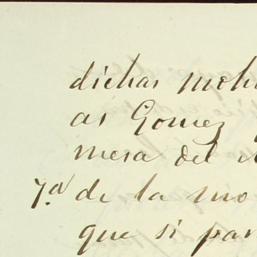 dichas moh
as Gomez
mesa del
7.a de la mo
que si par